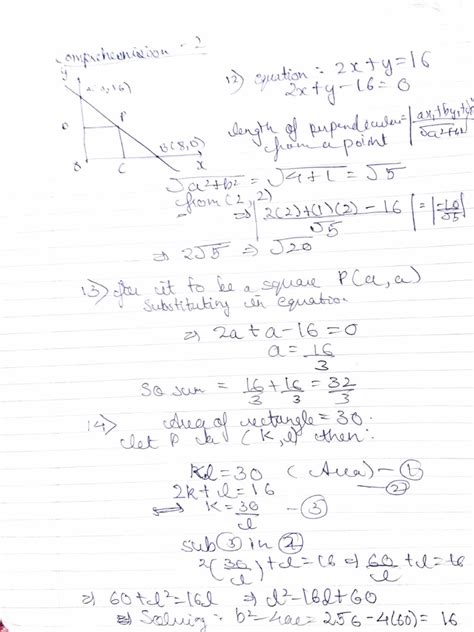 Comprehension - 2
y
A(0,16)
12) equation: 2x+y=16
2x+y-16=0
P
D
B(8,0)
O
C
x
length of perpendicular = |ax₁+by₁+c
from a point √a²+b²|
√a²+b² = √4+1 = √5
from (2,2)
⇒ |2(2)+(1)(2)-16 / √5| = |-10/√5|
⇒ 2√5 ⇒ √20
13) for it to be a square P(a,a)
substituting in equation
⇒ 2a+a-16=0
a = 16/3
So sum = 16/3 + 16/3 = 32/3
14) Area of rectangle = 30.
let P be (k,l) then:
kl=30 (Area) - ①
2k+l=16 - ②
k=30/l - ③
sub ③ in ②
2(30/l)+l=16 ⇒ 60/l+l=16
⇒ 60+l²=16l ⇒ l²-16l+60
⇒ Solving: b²-4ac=256-4(60)=16